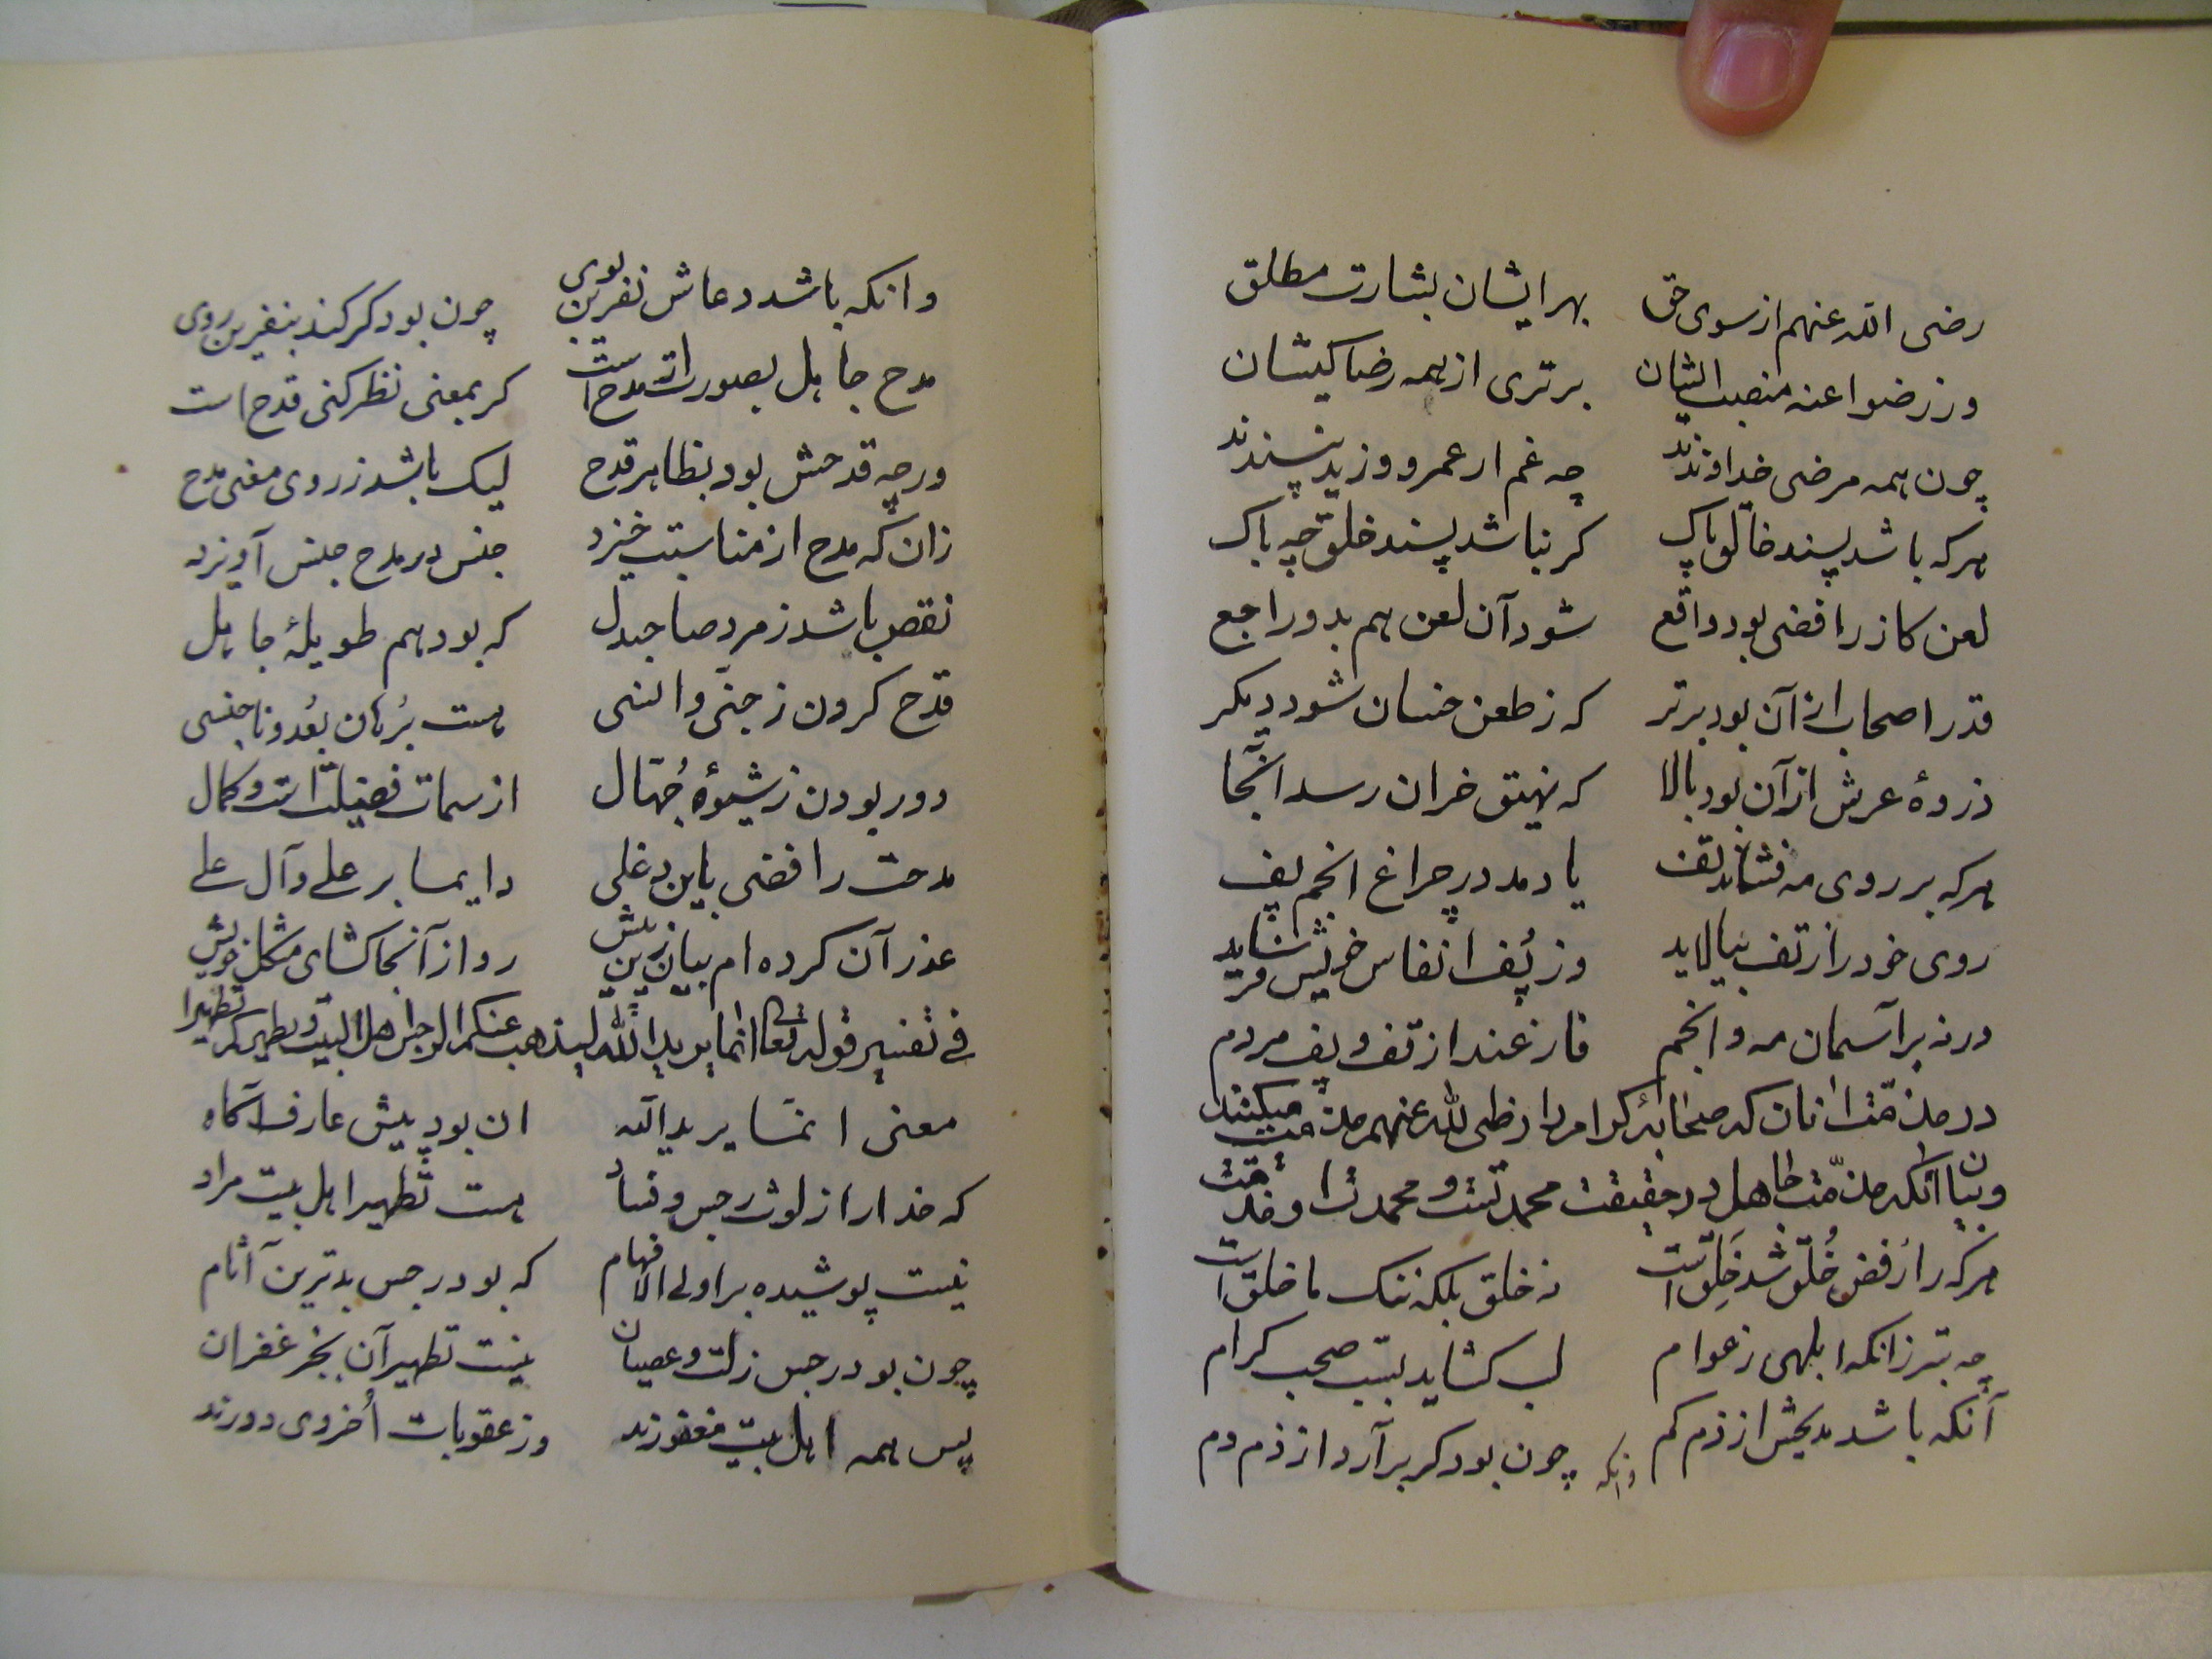 رضی الله عنهم از سوی حق بهر ایشان بشارت مطلق
وز رضوا عنه منصب ایشان برتری از همه رضا کیشان
چون همه مرضی خداوندند چه غم ار عمرو و زید نپسندند
هرکه باشد پسند خالق پاک کر نباشد پسند خلق چه باک
لعن کاز رافضی بود واقع شود آن لعن هم بدو راجع
قدر اصحاب از آن بود برتر که ز طعن خسان شود دیکر
ذروهٔ عرش از آن بود بالا که نهیق خران رسد آنجا
هرکه بر روی مه فشاند تف یا دمد در چراغ انجم پف
روی خود را ز تف بیالاید وز پُف انفاس خویش فرساید
ورنه بر آسمان مه و انجم فارغند از تف و پف مردم
در مذمّت انان که صحابهٔ کرام را رضی الله عنهم مذمت میکنند
و بیان آنکه مذمّت جاهل در حقیقت محمدتست و محمدت او مذمّت
هرکه را رفض خُلق شد خَلِق است نه خلق بلکه ننک ما خلق است
چه بتر زانکه ابلهی ز عوام لب کشاید بسب صحب کرام
آنکه باشد مدیحش از ذم کم چون بود کر برآرد از ذم دم
وانکه
وانکه باشد دعاش نفرین بوی چون بود کر کند بنفرین روی
مدح جاهل بصورت ار مدح است کر بمعنی نظر کنی قدح است
ورچه قدحش بود بظاهر قدح لیک باشد ز روی معنی مدح
زان که مدح از مناسبت خیزد جنس در مدح جنس آویزد
نقص باشد ز مرد صاحبدل که بود هم طویلهٔ جاهل
قدح کردن ز جنی و انسی هست بُرهان بُعد و ناجنسی
دور بودن ز شیوهٔ جُهّال از سمات فضیلت است و کمال
مدحت رافضی باین دغلی دایما بر علی و آل علی
عذر آن کرده ام بیان زین پیش رو از آنجا کشای مشکل خویش
فی تفسیر قوله تعا انما یرید الله لیذهب عنکم الرجس اهل البیت و یطهرکم تطهیرا
معنی انّما یرید الله ان بود پیش عارف آکاه
که خدا را ز لوث رجس و فساد هست تطهیر اهل بیت مراد
نیست پوشیده بر اولی الافهام که بود رجس بدترین آثام
چون بود رجس زلت و عصیان نیست تطهیر آن بجز غفران
پس همه اهل بیت مغفورند وز عقوبات اُخروی دورند